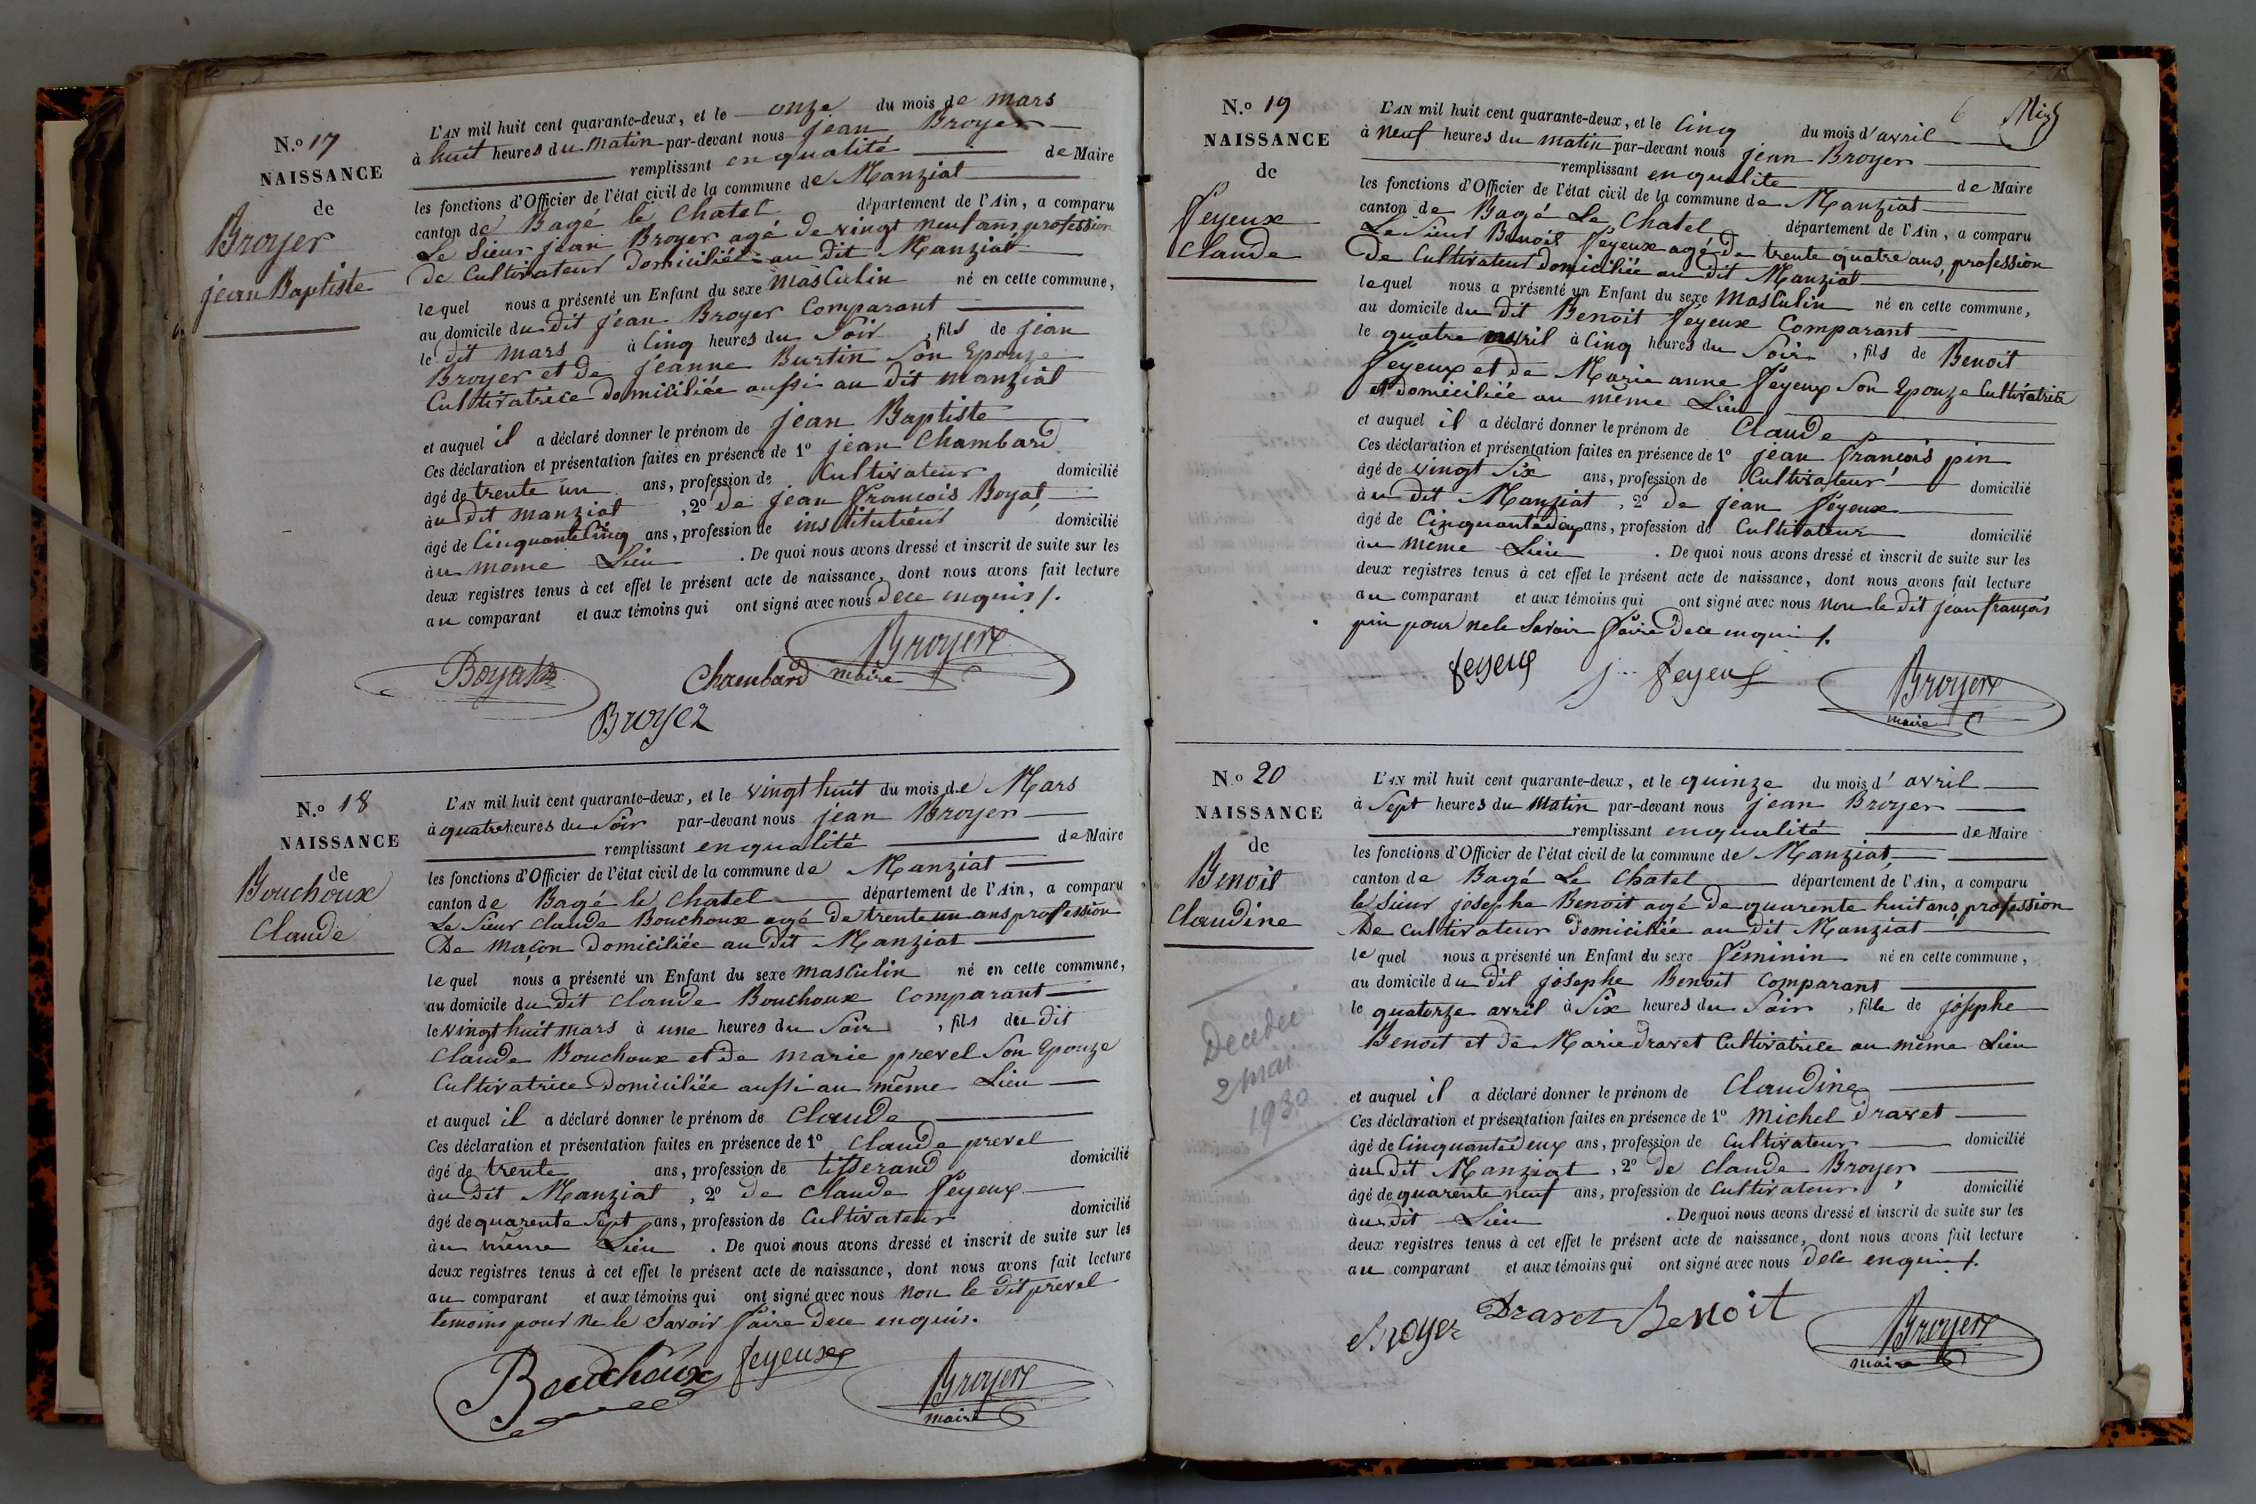 N.º 17
NAISSANCE
de
Broyer
jean Baptiste
L'AN mil huit cent quarante-deux, et le onze du mois de mars
à huit heures du matin par-devant nous jean Broyer
remplissant enqualité de Maire
les fonctions d'Officier de l'état civil de la commune de Manziat
canton de Bagé le Chatel département de l'Ain, a comparu
Le Sieur jean Broyer agé de vingt neuf ans, profession
de Cultivateur domiciliée au dit Manziat
lequel nous a présenté un Enfant du sexe masculin né en cette commune,
au domicile du dit jean Broyer Comparant
le dit mars à cinq heures du Soir, fils de jean
Broyer et de jeanne Burtin Son Epouze
Cultivatrice domiciliée aussi au dit manziat
et auquel il a déclaré donner le prénom de jean Baptiste
Ces déclaration et présentation faites en présence de 1º jean Chambard
âgé de trente un ans, profession de Cultivateur domicilié
au dit manziat, 2º de jean francois Boyat,
âgé de Cinquante Cinq ans, profession de instituteur domicilié
au meme Lieu. De quoi nous avons dressé et inscrit de suite sur les
deux registres tenus à cet effet le présent acte de naissance, dont nous avons fait lecture
au comparant et aux témoins qui ont signé avec nous dece enquis /.
Boyat Chambard Broyer
maire
Broyer
N.º 18
NAISSANCE
de
Bouchoux
Claude
L'AN mil huit cent quarante-deux, et le vingt huit du mois de Mars
à quatre heures du Soir par-devant nous jean Broyer
remplissant enqualité de Maire
les fonctions d'Officier de l'état civil de la commune de Manziat
canton de Bagé le Chatel département de l'Ain, a comparu
Le Sieur Claude Bouchoux agé de trente un ans profession
De maçon Domiciliée au dit Manziat
lequel nous a présenté un Enfant du sexe masculin né en cette commune,
au domicile du dit Claude Bouchoux Comparant
le vingt huit mars à une heures du Soir, fils du dit
Claude Bouchoux et de marie prevel Son Epouze
Cultivatrice domiciliée aussi au même Lieu
et auquel il a déclaré donner le prénom de Claude
Ces déclaration et présentation faites en présence de 1º Claude prevel
âgé de trente ans, profession de tisserand domicilié
au dit Manziat, 2º de Claude feyeux
âgé de quarente Sept ans, profession de Cultivateur domicilié
au même Lieu. De quoi nous avons dressé et inscrit de suite sur les
deux registres tenus à cet effet le présent acte de naissance, dont nous avons fait lecture
au comparant et aux témoins qui ont signé avec nous non le dit prevel
temoins pour ne le Savoir faire dece enquis.
Bouchoux feyeux Broyer
maire
N.º 19
NAISSANCE
de
feyeux
Claude
6
L'AN mil huit cent quarante-deux, et le Cinq du mois d'avril
à neuf heures du matin par-devant nous jean Broyer
remplissant enqualite de Maire
les fonctions d'Officier de l'état civil de la commune de Manziat
canton de Bagé Le Chatel département de l'Ain, a comparu
Le Sieur Benoit feyeux agé de trente quatre ans, profession
De Cultivateur domiciliée au dit Manziat
lequel nous a présenté un Enfant du sexe Masculin né en cette commune,
au domicile du dit Benoit feyeux Comparant
le quatre avril à Cinq heures du Soir, fils de Benoit
feyeux et de Marie anne feyeux Son Epouze Cultivatrice
et domiciliée au même Lieu
et auquel il a déclaré donner le prénom de Claude
Ces déclaration et présentation faites en présence de 1º jean francois pin
âgé de vingt Six ans, profession de Cultivateur domicilié
au dit Manziat, 2º de jean feyeux
âgé de Cinquante deux ans, profession de Cultivateur domicilié
au même Lieu. De quoi nous avons dressé et inscrit de suite sur les
deux registres tenus à cet effet le présent acte de naissance, dont nous avons fait lecture
au comparant et aux témoins qui ont signé avec nous non le dit jean françois
pin pour ne le Savoir faire dece enquis /.
feyeux j feyeux Broyer
maire
N.º 20
NAISSANCE
de
Benoit
Claudine
Decedee
2 mai
1930
L'AN mil huit cent quarante-deux, et le quinze du mois d'avril
à Sept heures du Matin par-devant nous jean Broyer
remplissant enqualité de Maire
les fonctions d'Officier de l'état civil de la commune de Manziat
canton de Bagé Le Chatel département de l'Ain, a comparu
le Sieur josephe Benoit agé de quarente huit ans, profession
De Cultivateur domiciliée au dit Manziat
lequel nous a présenté un Enfant du sexe féminin né en cette commune,
au domicile du dit josephe Benoit Comparant
le quatorze avril à Six heures du Soir, fille de josephe
Benoit et de Marie dravet Cultivatrice au même Lieu
et auquel il a déclaré donner le prénom de Claudine
Ces déclaration et présentation faites en présence de 1º Michel dravet
âgé de Cinquante deux ans, profession de Cultivateur domicilié
au dit Manziat, 2º de Claude Broyer,
âgé de quarente neuf ans, profession de Cultivateur, domicilié
au dit Lieu. De quoi nous avons dressé et inscrit de suite sur les
deux registres tenus à cet effet le présent acte de naissance, dont nous avons fait lecture
au comparant et aux témoins qui ont signé avec nous dece enquis /.
Broyer Dravet Benoit Broyer
maire